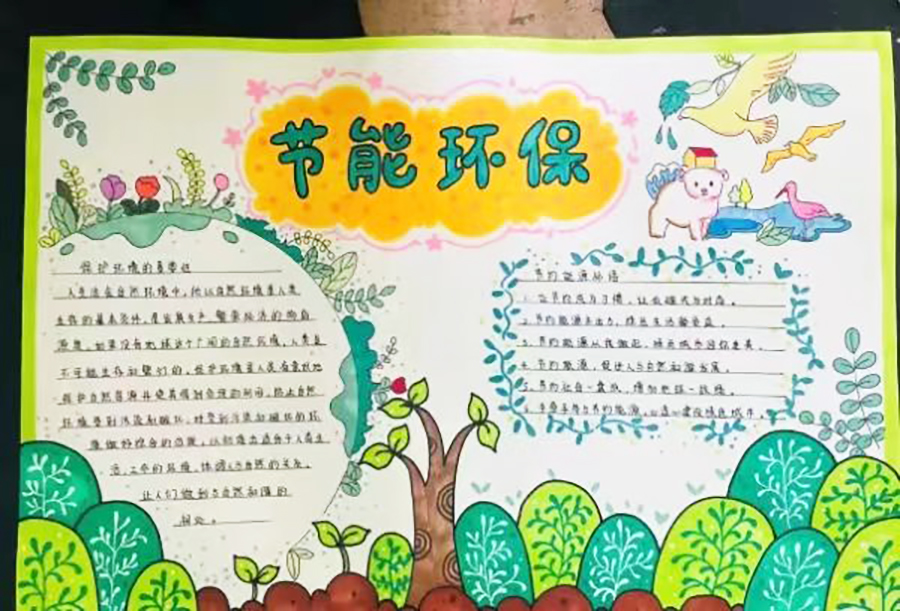 节能环保
保护环境的重要性
人生活在自然环境中,所以自然环境是人类
生存的基本条件,是发展生产、繁荣经济的物质
源泉。如果没有地球这个广阔的自然环境,人类是
不可能生存和繁衍的。
保护自然资源并使其得到合理的利用,防止自然
环境受到污染和破坏,对受到污染和破坏的环
境做好综合的治理,以创造出适合于人类生
活、工作的环境,协调人与自然的关系,
让人们做到与自然和谐的
相处。
节约能源标语
1.让节约成为习惯,让低碳成为时尚。
2.节约能源去出力,
3.节约能源从我做起,
4.节约能源,促进人与自然和谐发展。
5.节约让自一盎司,增加地球一
6.手牵手参与节约能源,心连心建设绿色城市。